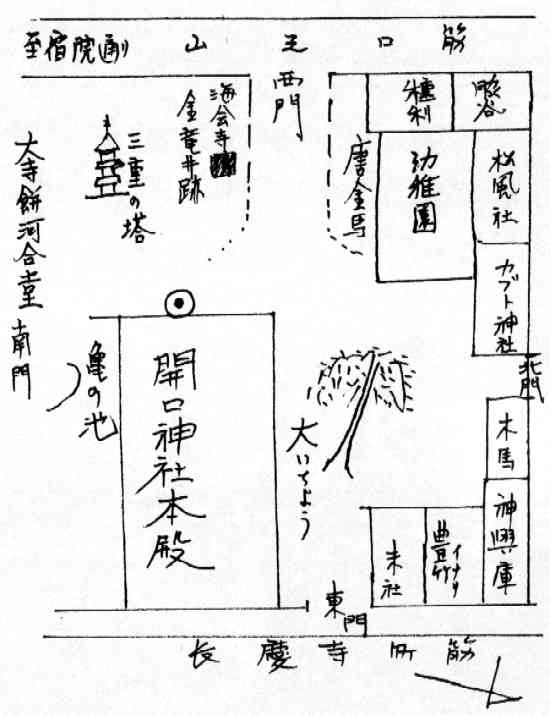 至宿院通
山王口筋
西門
海会寺
金竜井跡
三重の塔
大寺餅河合堂
南門
唐金馬
幼稚園
松風社
カブト神社
北門
亀の池
開口神社本殿
大いちよう
木馬
神輿庫
豊竹
イナリ
末社
東門
長慶寺町筋